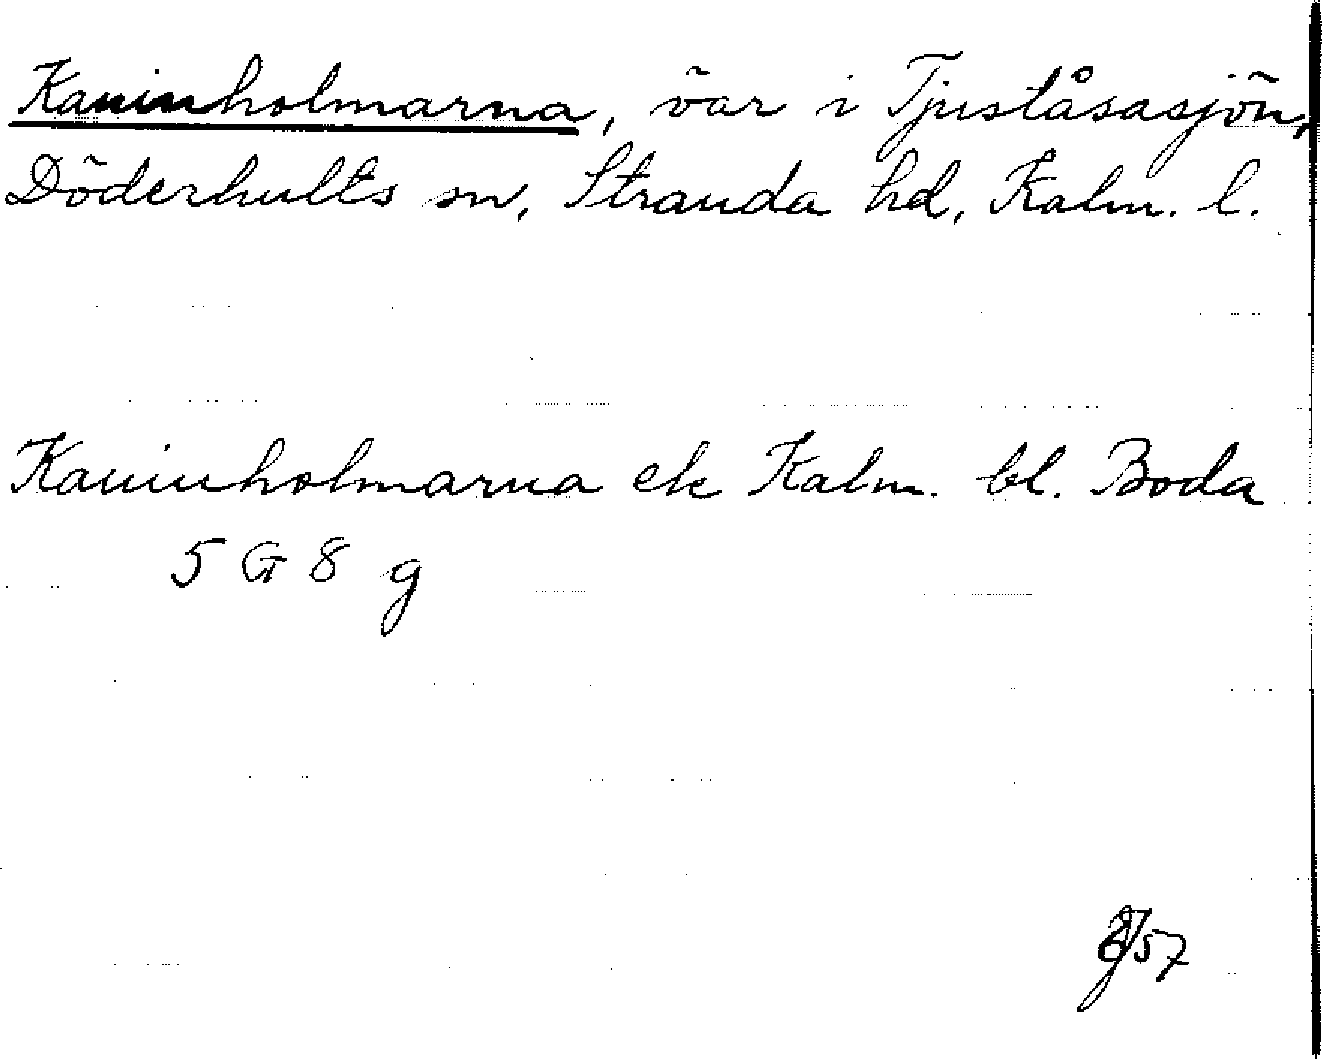 Kaninholmarna, öar i Tjuståsasjön,
Döderhults sn, Stranda hd, Kalm. l.
Kaninholmarna ek Kalm. bl. Boda
5 G 8 g